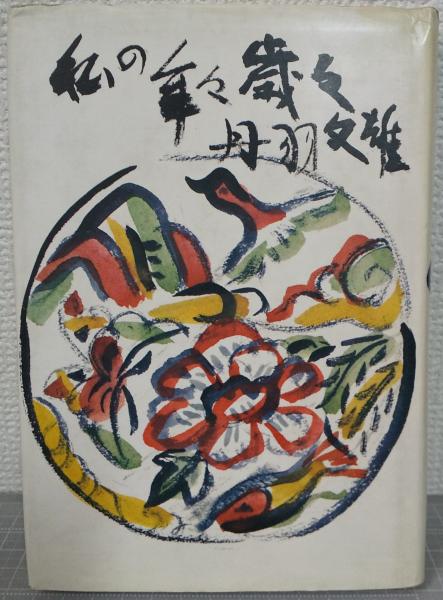 私の年々歳々
丹羽文雄